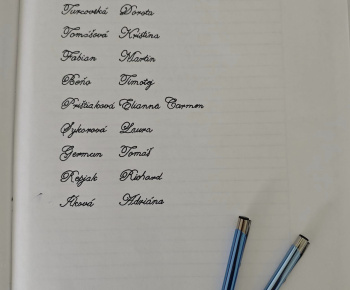 Turcovská Dorota
Tomášová Kristína
Fabian Martin
Beňo Timotej
Prištiaková Elianne Carmen
Sykorová Laura
Germun Tomáš
Repjak Richard
Iľková Adriána